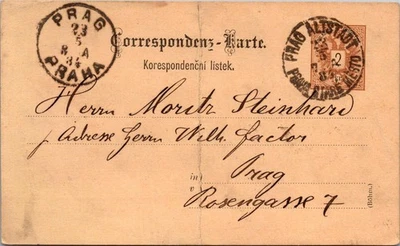 PRAG
23
5
8 A
84
PRAHA
Correspondenz-Karte.
Korespondenční listek.
PRAG ALTSTADT
2
Herrn Moritz Steinhard
p Adresse Herrn Wilh. factor
in
Prag
Rosengasse 7
(Böhm.)